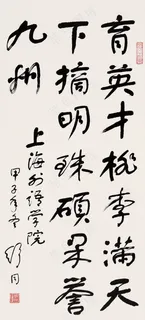 育英才桃李满天
下摘明珠硕果誉
九州
上海外语学院
甲子年 舒同